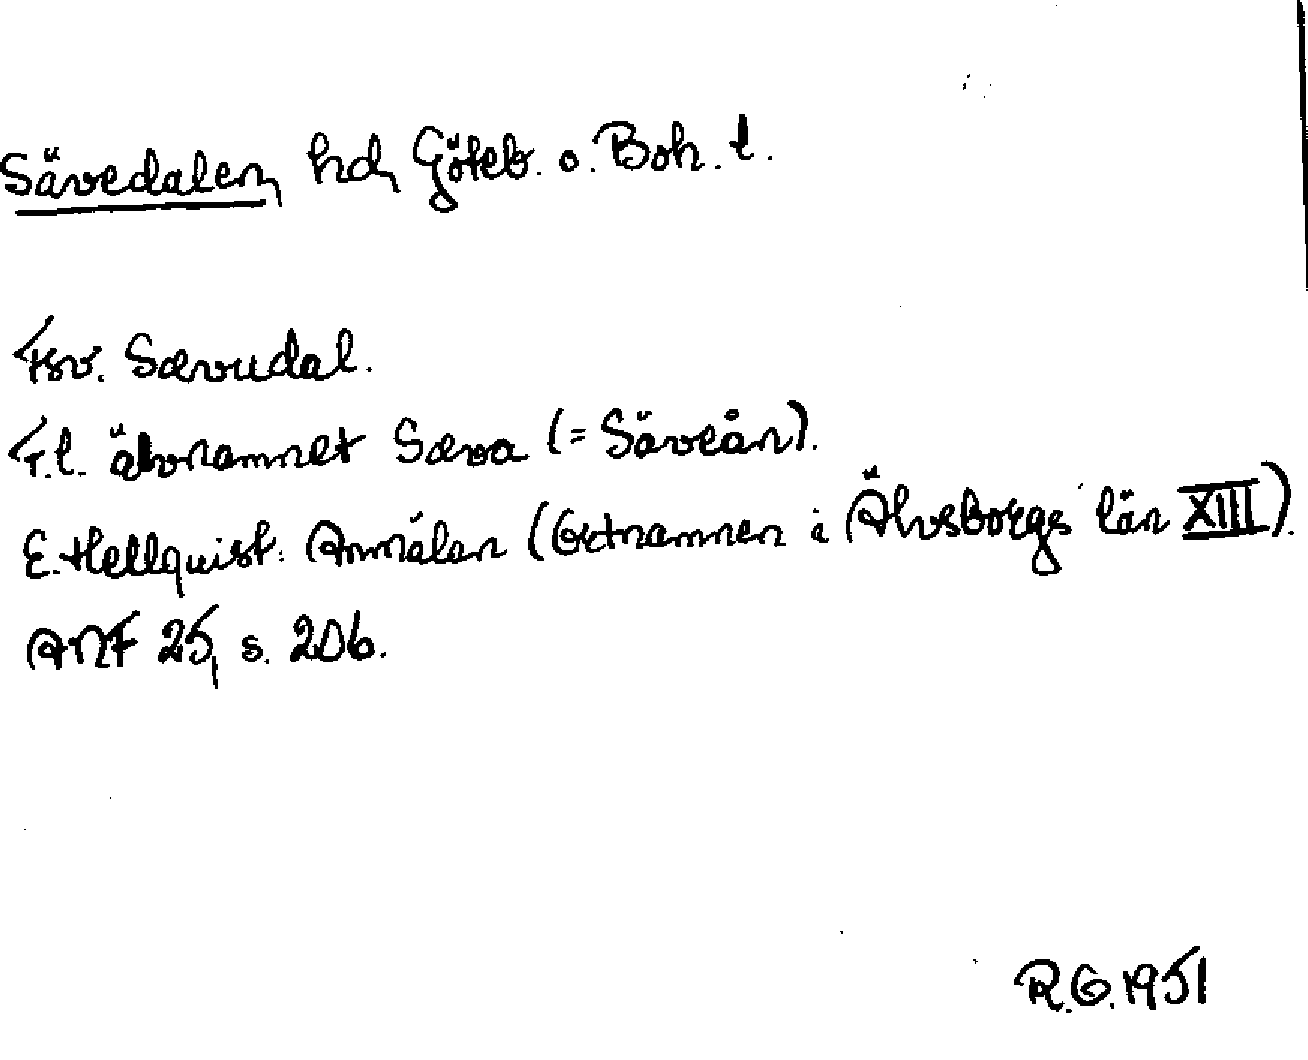 Sävedalen, hd, Göteb. o. Boh. l.
Fsv. Sævudal.
T.l. älvnamnet Sæva (= Säveån).
E. Hellquist: Anmälan (Ortnamnen i Älvsborgs län XIII).
ANF 25, s. 206.
R.G. 1951